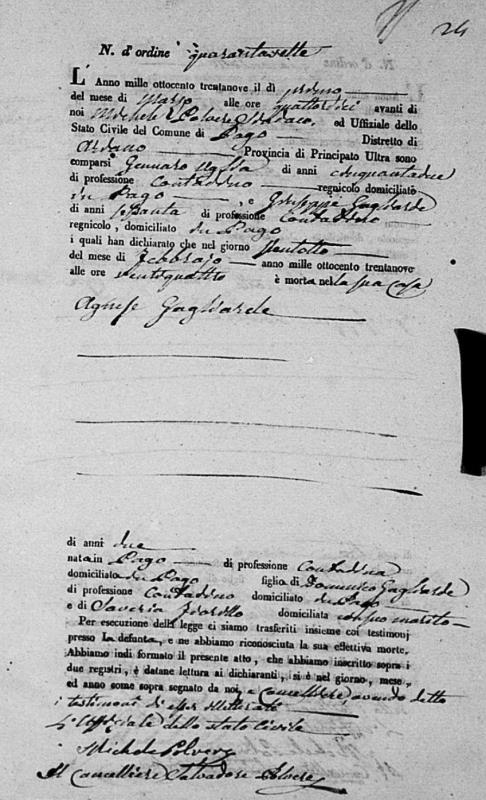 24
N. d'ordine quarantasette
L'Anno mille ottocento trentanove il dì
del mese di Marzo alle ore quattordici avanti di
noi Michele Polvere Sindaco, ed Uffiziale dello
Stato Civile del Comune di Pago Distretto di
Ariano Provincia di Principato Ultra sono
comparsi Gennaro di anni cinquantadue
di professione Contadino regnicolo domiciliato
in Pago, e Giuseppe Gagliarde
di anni sessanta di professione Contadino
regnicolo, domiciliato in Pago
i quali han dichiarato che nel giorno ventotto
del mese di Febbrajo anno mille ottocento trentanove
alle ore ventiquattro è morta nella sua casa
Agnese Gagliarde
di anni due
nata in Pago di professione Contadina
domiciliato in Pago figlia di Domenico Gagliarde
di professione Contadino domiciliato in Pago
e di Saveria domiciliata con suo marito
Per esecuzione della legge ci siamo trasferiti insieme coi testimonj
presso La defunta, e ne abbiamo riconosciuta la sua effettiva morte.
Abbiamo indi formato il presente atto, che abbiamo inscritto sopra i
due registri, è datane lettura ai dichiaranti, si è nel giorno, mese,
ed anno come sopra segnato da noi, e Cancelliere, avendo detto
i testimonj di esser illetterati
L'Uffiziale dello stato Civile
Michele Polvere
Il Cancelliere Salvadore Polvere